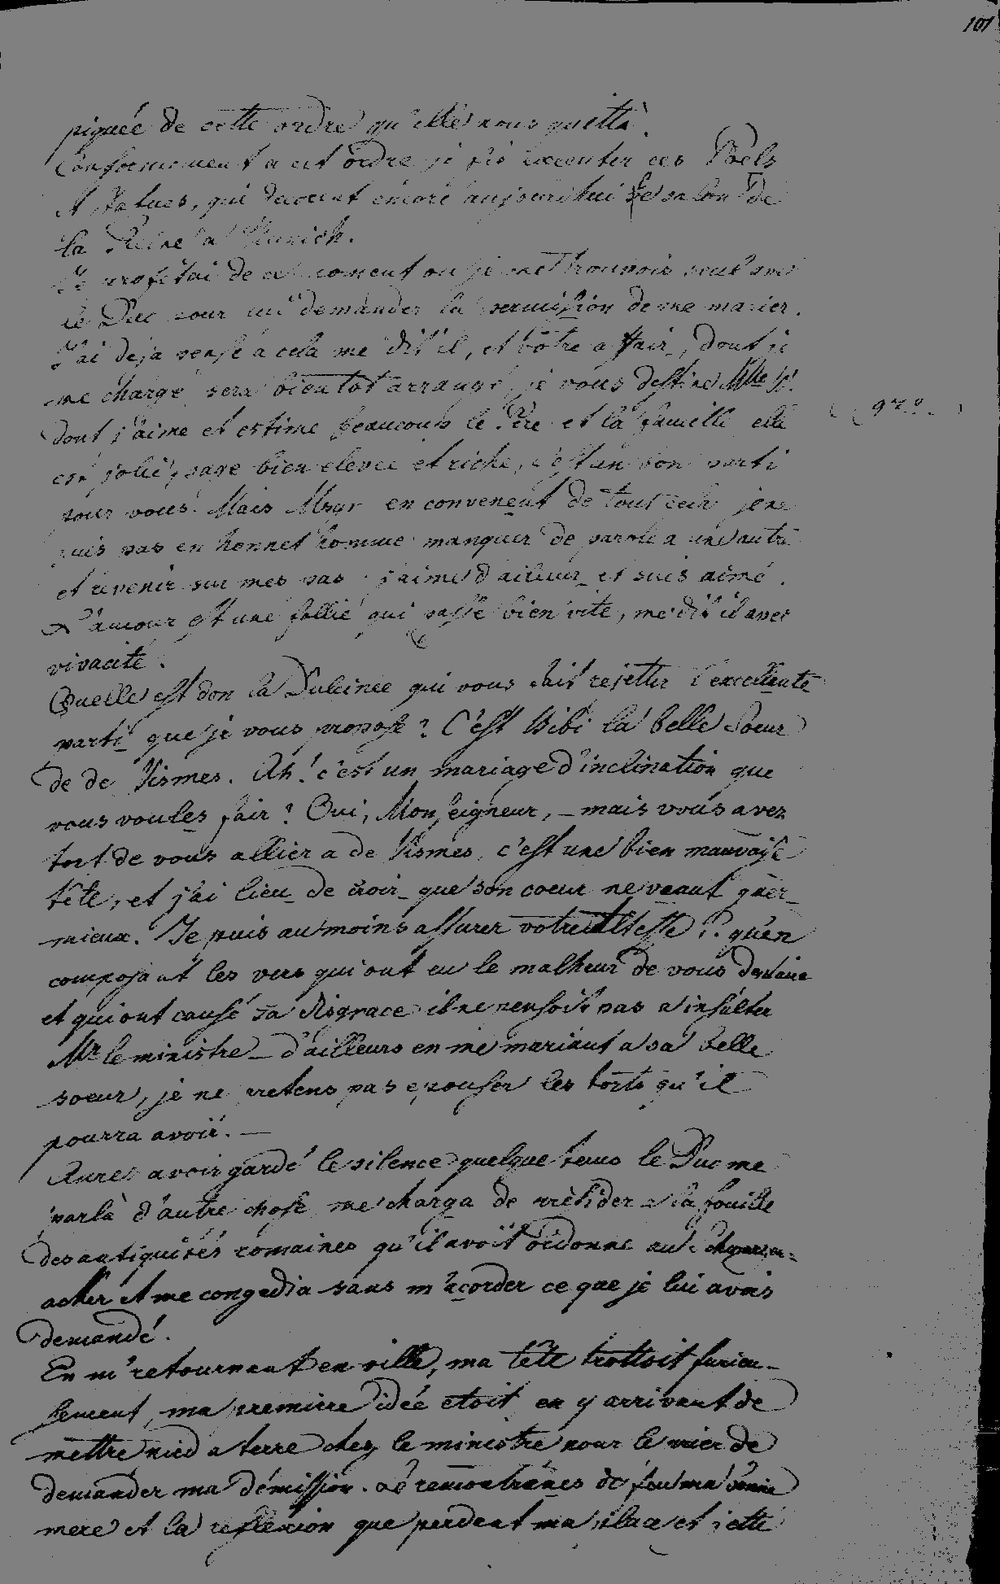 101
piquée de cette ordre qu'elle nous quitta.
Conformement a cet ordre je fis executer ces Poels
et statues, qui decorent encore aujourdhui le salon de
la Reine a Munich.
Je profitai de ce moment ou je me trouvois seul avec
le Duc pour lui demander la permission de me marier.
J'ai deja pensé a cela me dit il, et votre affair, dont je
me charge sera bientot arrangé, je vous destine Mlle
dont j'aime et estime beaucoup le Père et la famille elle
est jolie, sage bien elevee et riche, c'est un bon parti
pour vous. Mais Msgr en convenent de tout cela je ne
puis pas en honnet homme manquer de parole a une autre
et revenir sur mes pas j'aime d'ailleur et suis aimé.
L'amour est une follie qui passe bien vite, me dit il avec
vivacité.
Quelle est don la Dulcinee qui vous fait rejetter l'excellente
parti que je vous propose? C'est Bibi la belle Soeur
de de Vismes. Ah! c'est un mariage d'inclination que
vous voules fair? Oui, Monseigneur, – mais vous avez
tort de vous allier a de Vismes, c'est une bien mauvaise
tête, et j'ai lieu de croir que son coeur ne veaut guer
mieux. Je puis au moins assurer votre Altesse qu'en
composant les vers qui ont eu le malheur de vous deplaire
et qui ont causé sa disgrace il ne pensoit pas a insulter
Mr le ministre – d'ailleurs en me mariant a sa belle
soeur, je ne pretens pas epouser les torts qu'il
pourra avoir. –
Apres avoir gardé le silence quelque tems le Duc me
parla d'autre chose me charga de présider a la fouille
des antiquités romaines qu'il avoit ordonne au
acker et me congedia sans m'acorder ce que je lui avois
demandé.
En m'retournant en ville, ma tête trottoit furieu-
sement, ma premiere idée etoit en y arrivant de
mettre pied a terre chez le ministre pour le prier de
demander ma démission. Le remontrences de feu ma bonne
mere et la reflexion que perdent ma place et cette